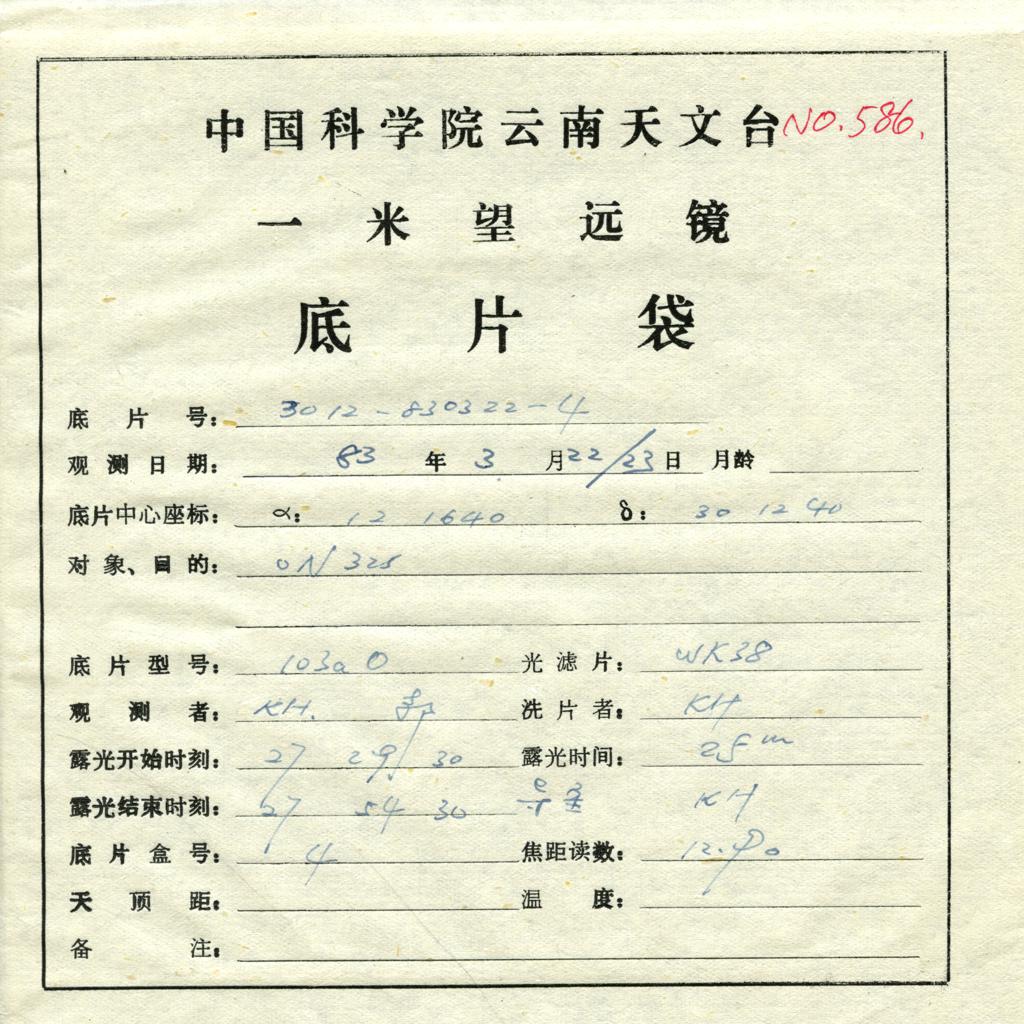 中国科学院云南天文台 NO.586.
一米望远镜
底片袋
底片号: 3012-830322-4
观测日期: 83年3月22/23日 月龄
底片中心座标: α: 12 1640 δ: 30 12 40
对象、目的: ON 325
底片型号: 103aO 光滤片: WK38
观测者: KH. 郭 洗片者: KH
露光开始时刻: 27 29 30 露光时间: 25m
露光结束时刻: 27 54 30 导星 KH
底片盒号: 4 焦距读数: 12.90
天顶距: 温度:
备注: